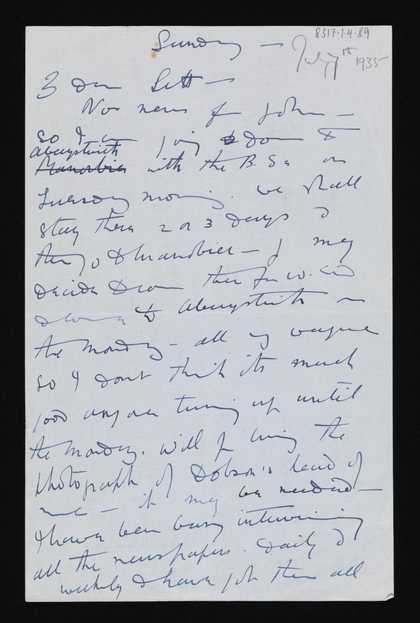 8317.1.4.89
Sunday —
July 7th 1935
Dear Sett —
No news of John —
so I am going to Down to
Aberystwith
Manorbier with the B.Ss on
Tuesday morning. we shall
stay there 2 or 3 days &
then go to Manorbier — I may
decide
to Aberystwith on
the Monday — all is vague
so I dont think its much
good anyone turning up until
the Monday. Will you bring the
photograph of Dobson's head of
me — it may be needed —
I have been busy interviewing
all the newspapers. Daily &
weekly & have got them all